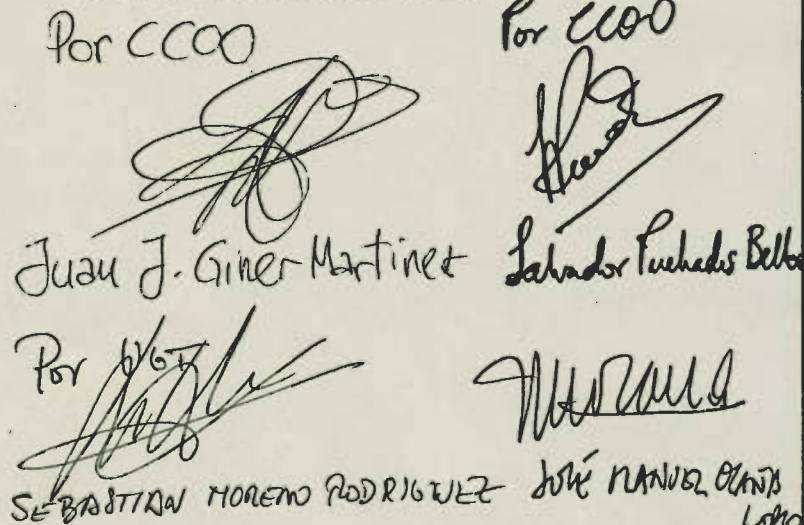 Por CCOO
Por CCOO
Juan J. Giner Martinez
Salvador Puchades
Por UGT
SEBASTIAN MORENO RODRIGUEZ
JOSÉ MANUEL